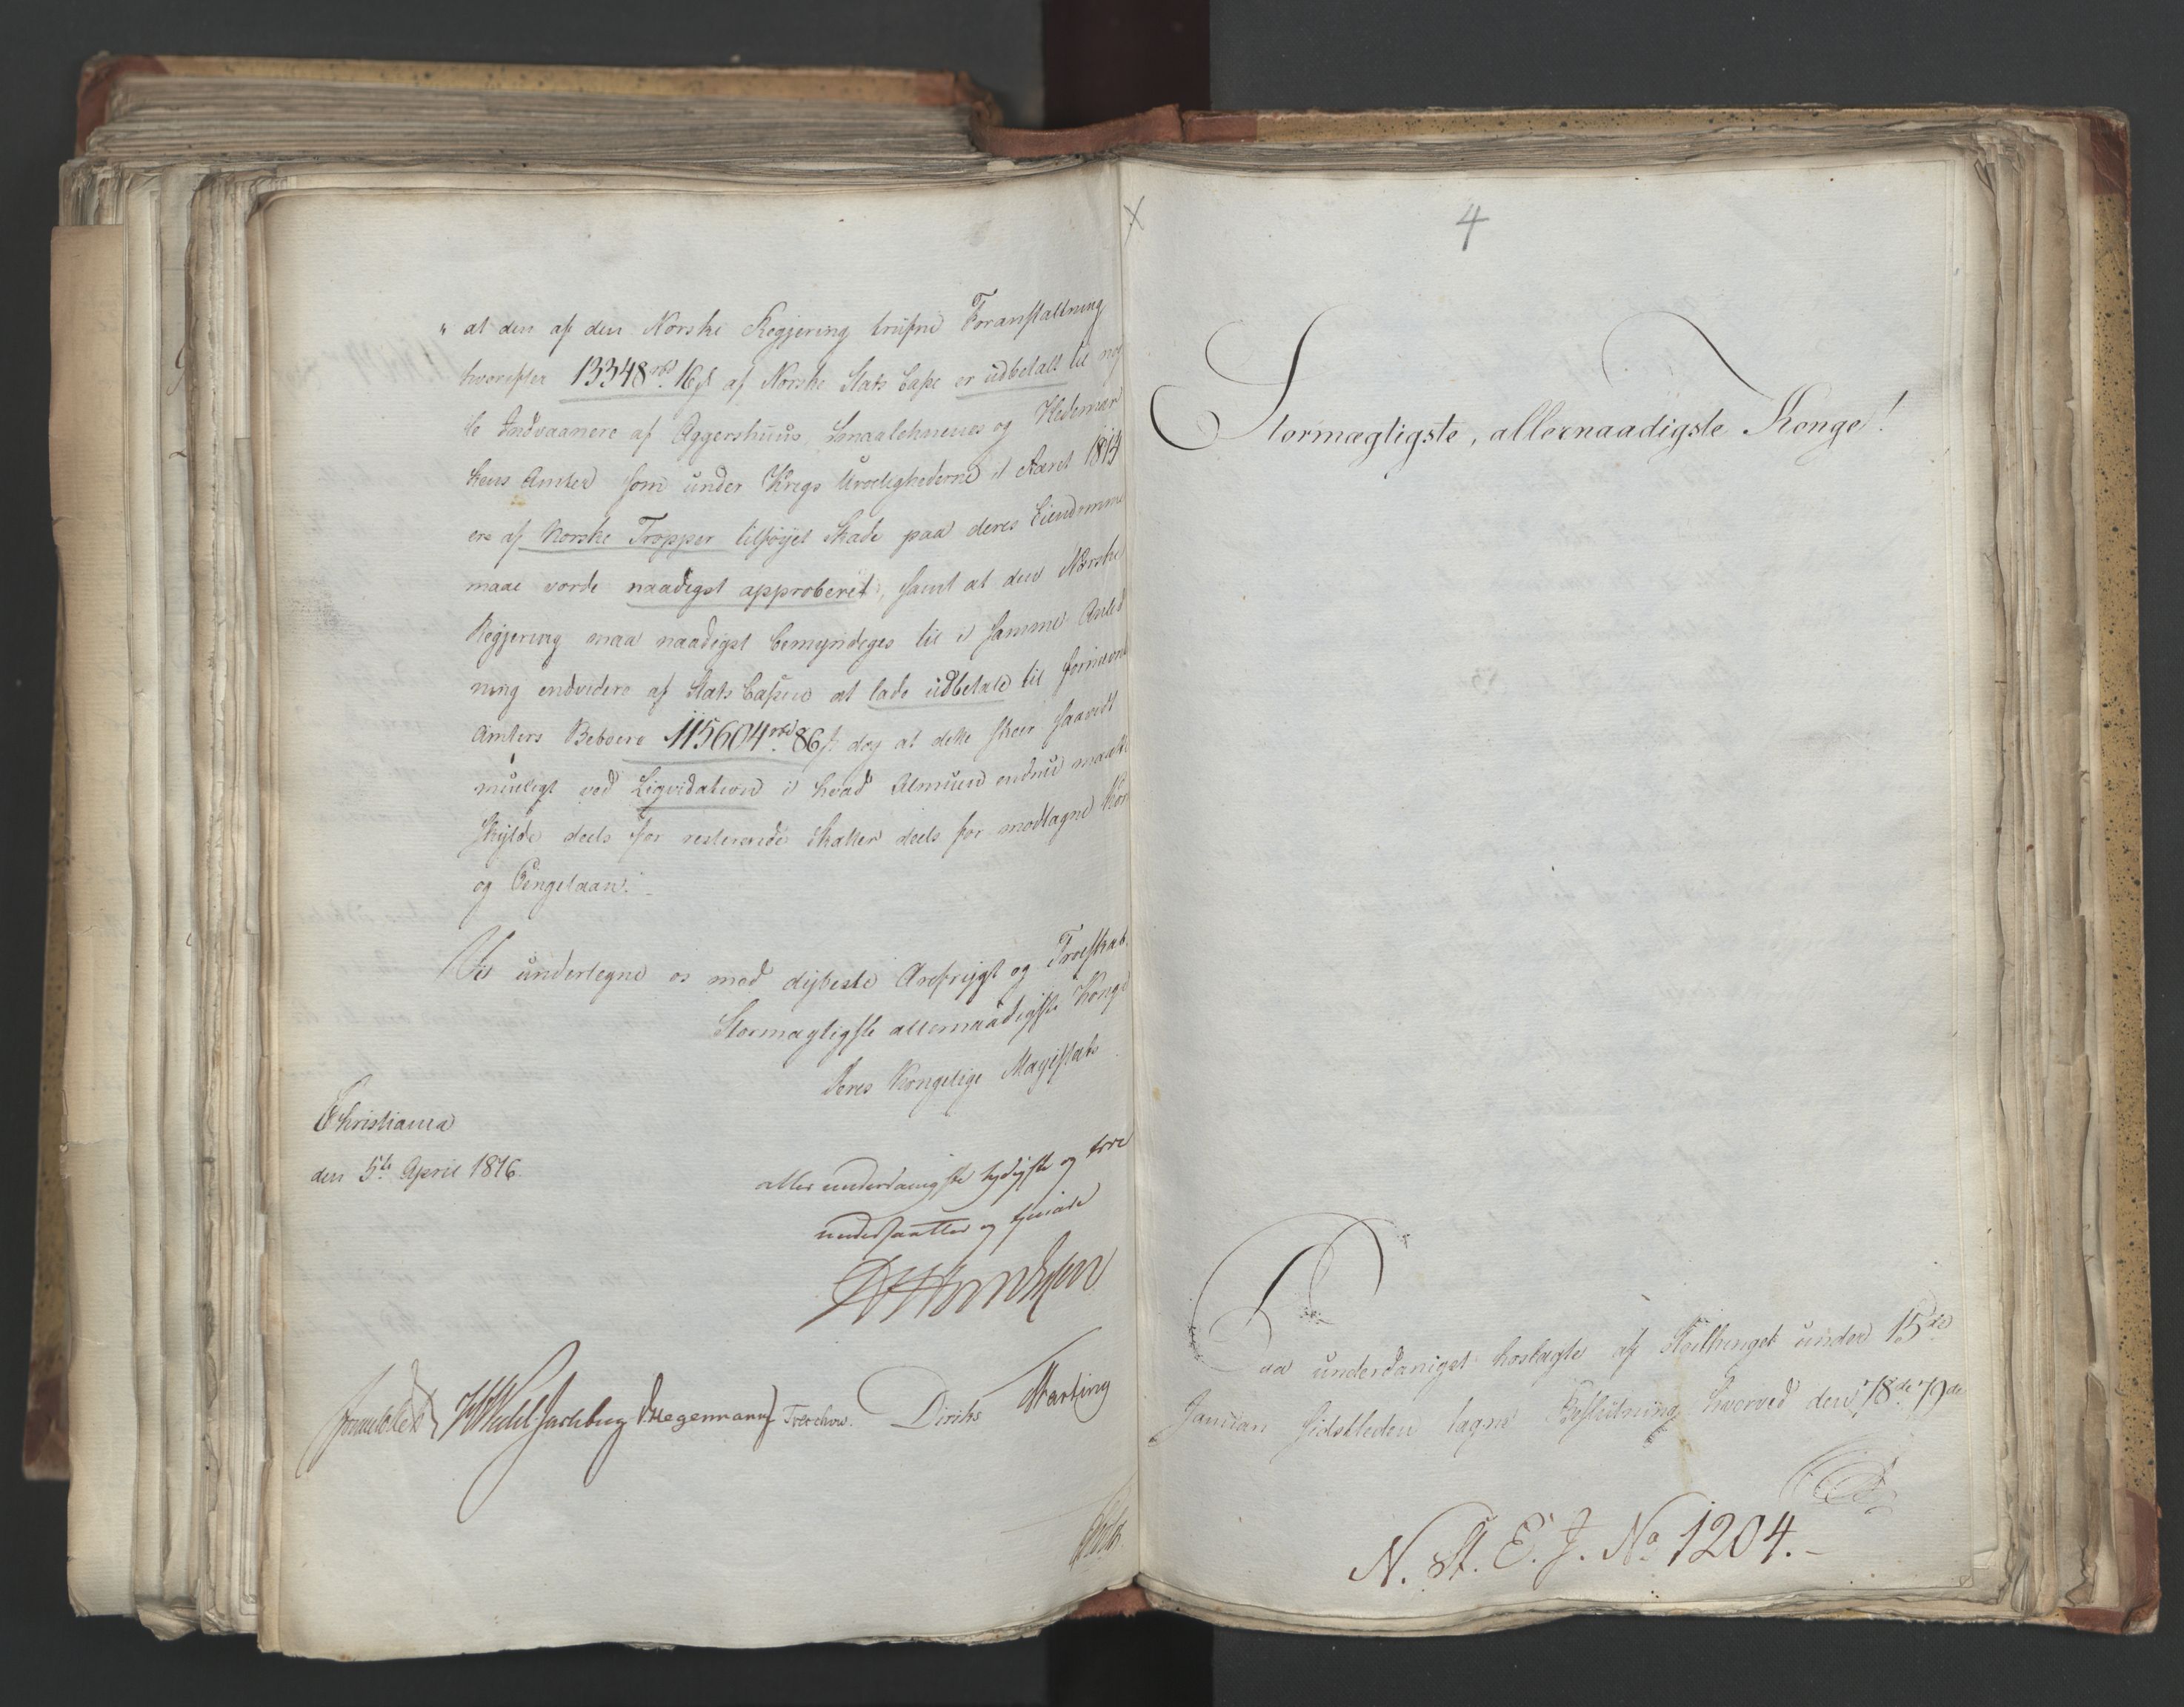 " at den af den Norske Regjering trufne Foranstaltning
hvorefter 13348 rbd. 16 s af Norske Stats Casse er udbetalt til nog
le Indvaanere af Aggershuus, Smaalehnenes og Hedemar
kens Amter som under Krigs Uroelighederne i Aaret 1814
ere af Norske Tropper tilføyet Skade paa deres Eiendomme
maae vorde naadigst approberet, samt at den Norske
Regjering maa naadigst bemyndiges til i samme Anled
ning endvidere af Stats Cassen at lade udbetale til fornævnte
Amters Beboere 115604 rbd. 86 s dog at dette skeer saavidt
mueligt ved Liqvidation i hvad Almuen endnu maatte
skylde deels for resterende Skatter deels for modtagne Korn
og Pengelaan.
Vi undertegne os med dybeste Ærefrygt og Troeskab.
Stormægtigste allernaadigste Konge
Deres Kongelige Majestæts
Christiania
den 5te April 1816.
allerunderdanigste lydigste og troe
undersaatter og tjenere
Sommerhielm HWedel Jarlsberg DHegermann Treschow. Diriks
4
Stormægtigste, allernaadigste Konge!
Paa underdanigst foretagte af Storthinget under 15de
Januar sidstleden tagne Beslutning hvorved den 78de 79de
N. St. E. J. No 1204.